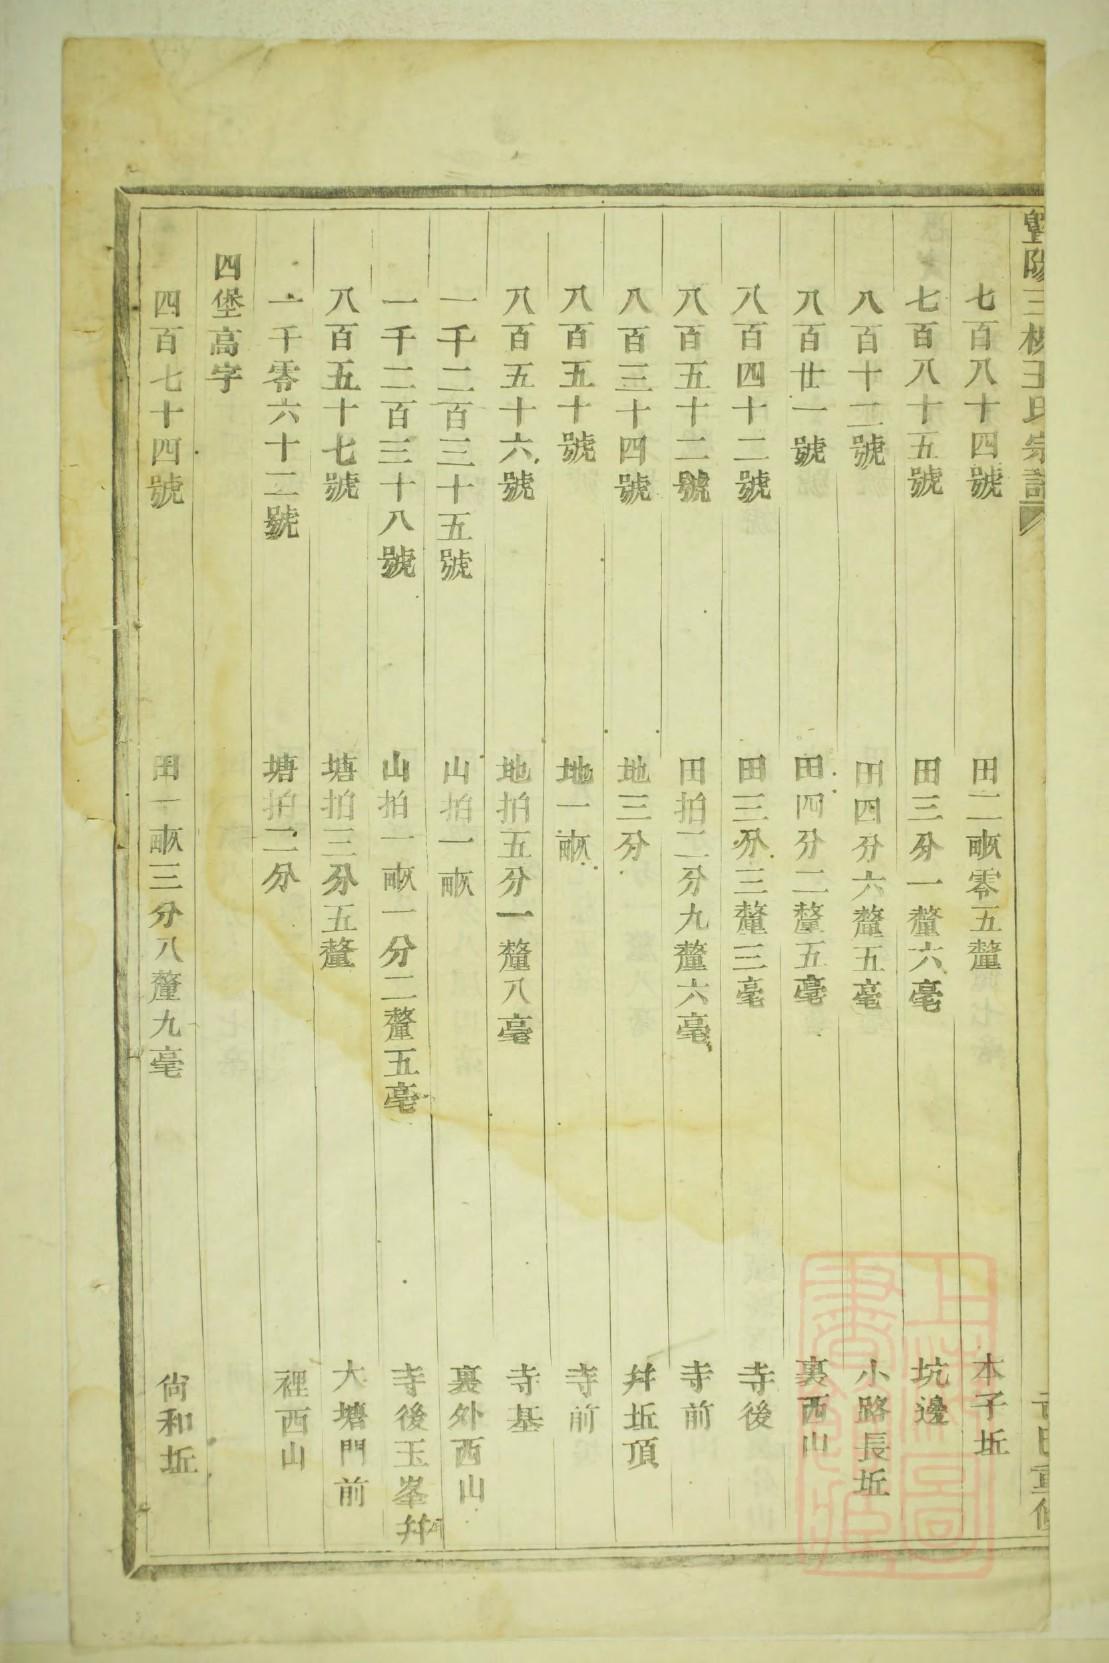 七百八十四號 田二畝零五釐 本子坵
七百八十五號 田三分一釐六毫 坑邊
八百十二號 田四分六釐五毫 小路長坵
八百廿一號 田四分二釐五毫 裏西山
八百四十二號 田三分三釐三毫 寺後
八百五十二號 田拍二分九釐六毫 寺前
八百三十四號 地三分 坵頂
八百五十號 地一畝 寺前
八百五十六號 地拍五分一釐八毫 寺基
一千二百三十五號 山拍一畝 裏外西山
一千二百三十八號 山拍一畝一分二釐五毫 寺後玉峯
八百五十七號 塘拍三分五釐 大塘門前
一千零六十二號 塘拍二分 裡西山
四堡高字
四百七十四號 田一畝三分八釐九毫 尙和坵